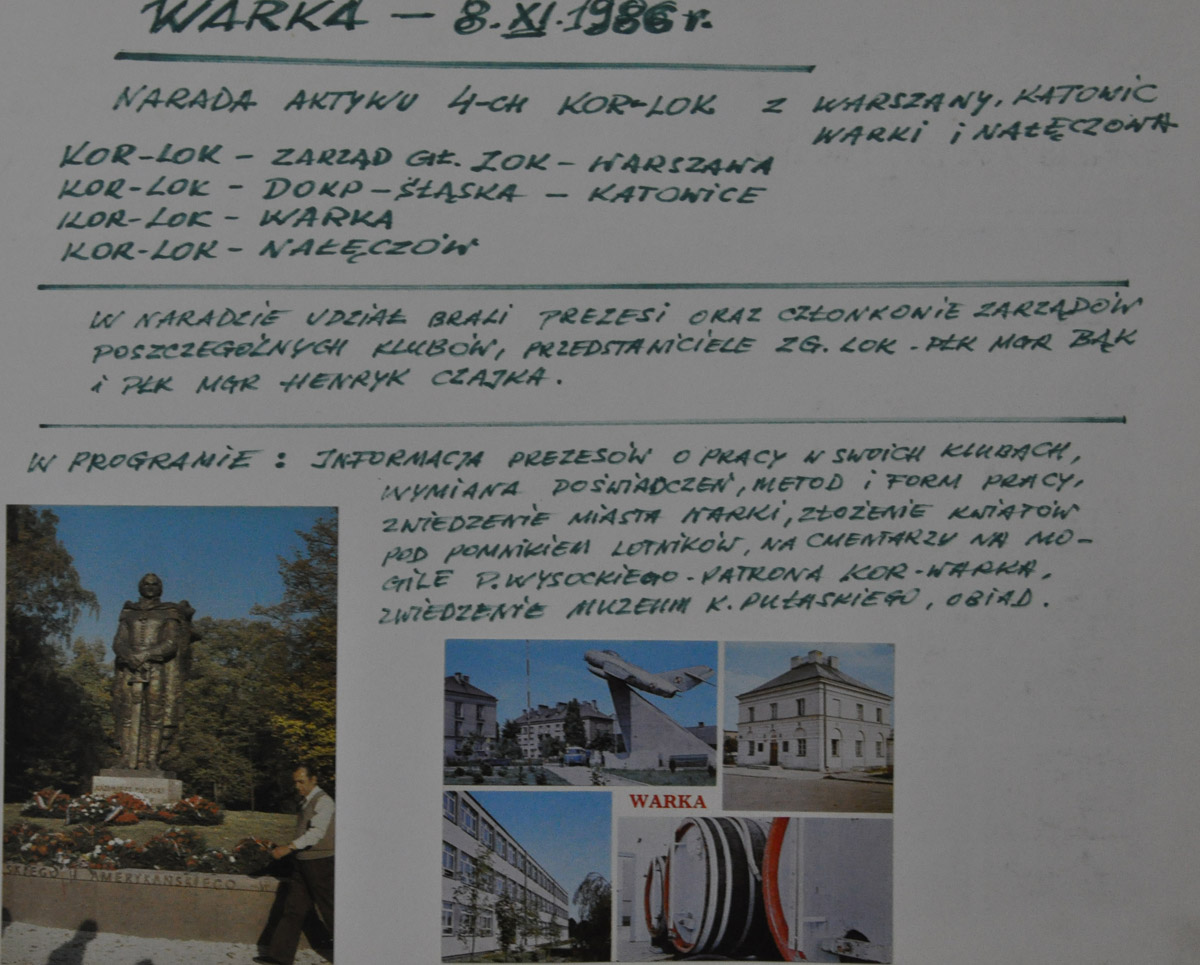 WARKA — 8.XI.1986 r.
NARADA AKTYWU 4-CH KOR-LOK Z WARSZAWY, KATOWIC
WARKI i NAŁĘCZOWA
KOR-LOK - ZARZĄD GŁ. LOK - WARSZAWA
KOR-LOK - DOKP - ŚLĄSKA - KATOWICE
KOR-LOK - WARKA
KOR-LOK - NAŁĘCZÓW
W NARADZIE UDZIAŁ BRALI PREZESI ORAZ CZŁONKOWIE ZARZĄDÓW
POSZCZEGÓLNYCH KLUBÓW, PRZEDSTAWICIELE ZG. LOK - PŁK MGR BĄK
i PŁK MGR HENRYK CZAJKA.
W PROGRAMIE : INFORMACJA PREZESÓW O PRACY W SWOICH KLUBACH,
WYMIANA DOŚWIADCZEŃ, METOD i FORM PRACY,
ZWIEDZENIE MIASTA WARKI, ZŁOŻENIE KWIATÓW
POD POMNIKIEM LOTNIKÓW, NA CMENTARZU NA MO-
GILE P. WYSOCKIEGO - PATRONA KOR-WARKA,
ZWIEDZENIE MUZEUM K. PUŁASKIEGO, OBIAD.
KAZIMIERZ PUŁASKI
SKIEGO II AMERYKAŃSKIEGO
WARKA